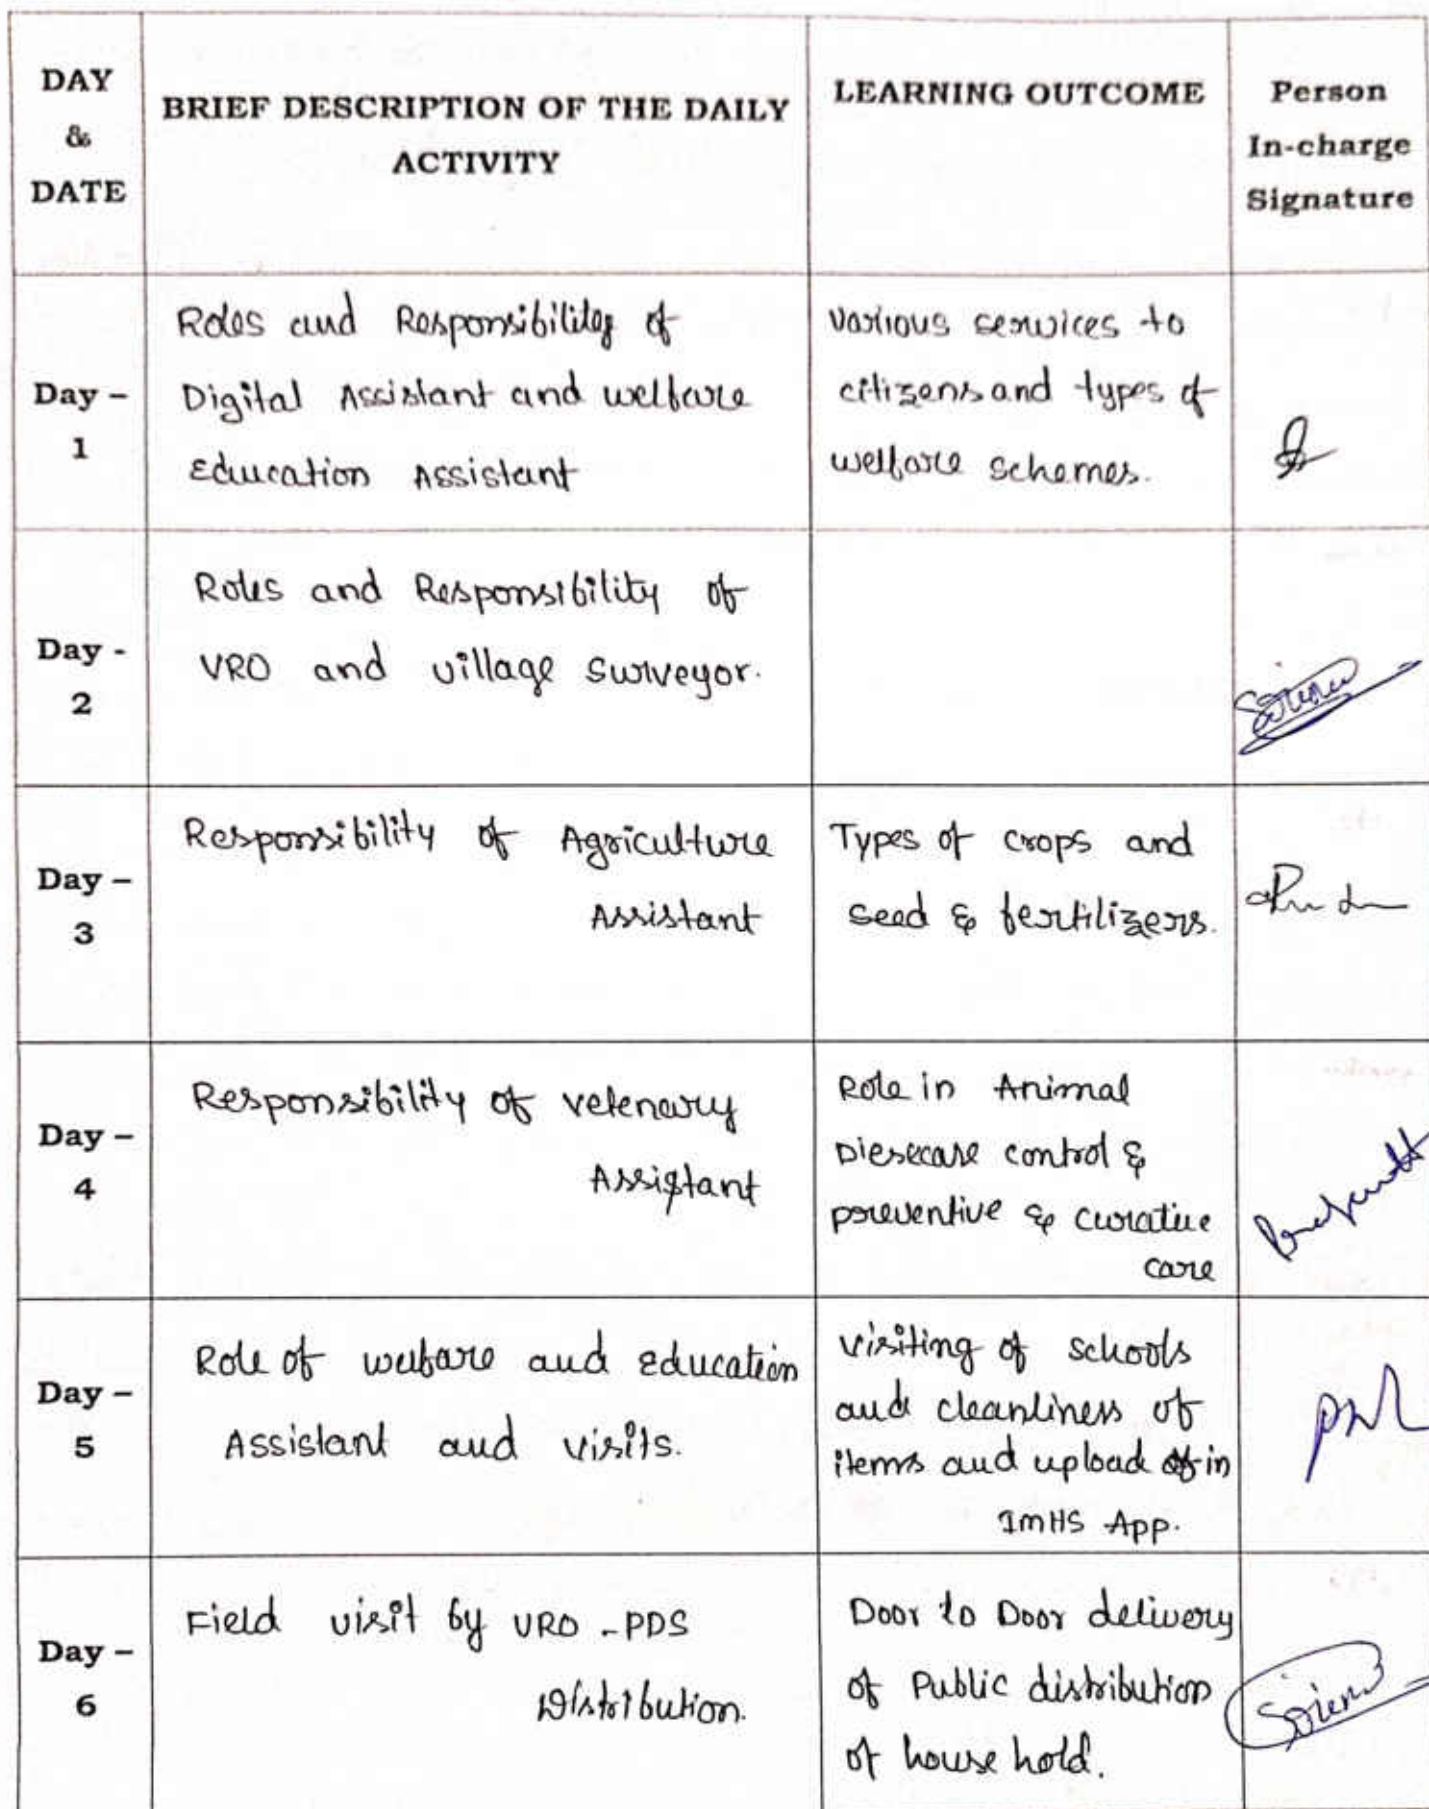 DAY
&
DATE
BRIEF DESCRIPTION OF THE DAILY
ACTIVITY
LEARNING OUTCOME
Person
In-charge
Signature
Day –
1
Roles and Responsibilites of
Digital Assistant and welfare
Education Assistant
various services to
citizens and types of
welfare schemes.
Day -
2
Roles and Responsibility of
VRO and village surveyor.
Day –
3
Responsibility of Agriculture
Assistant
Types of crops and
seed & fertilizers.
Day –
4
Responsibility of vetenary
Assistant
Role in Animal
Diesecase control &
preventive & curative
care
Day –
5
Role of welfare and Education
Assistant and visits.
visiting of schools
and cleanliness of
items and upload in
ImHS App.
Day –
6
Field visit by VRO - PDS
Distribution.
Door to Door delivery
of Public distribution
of house hold.